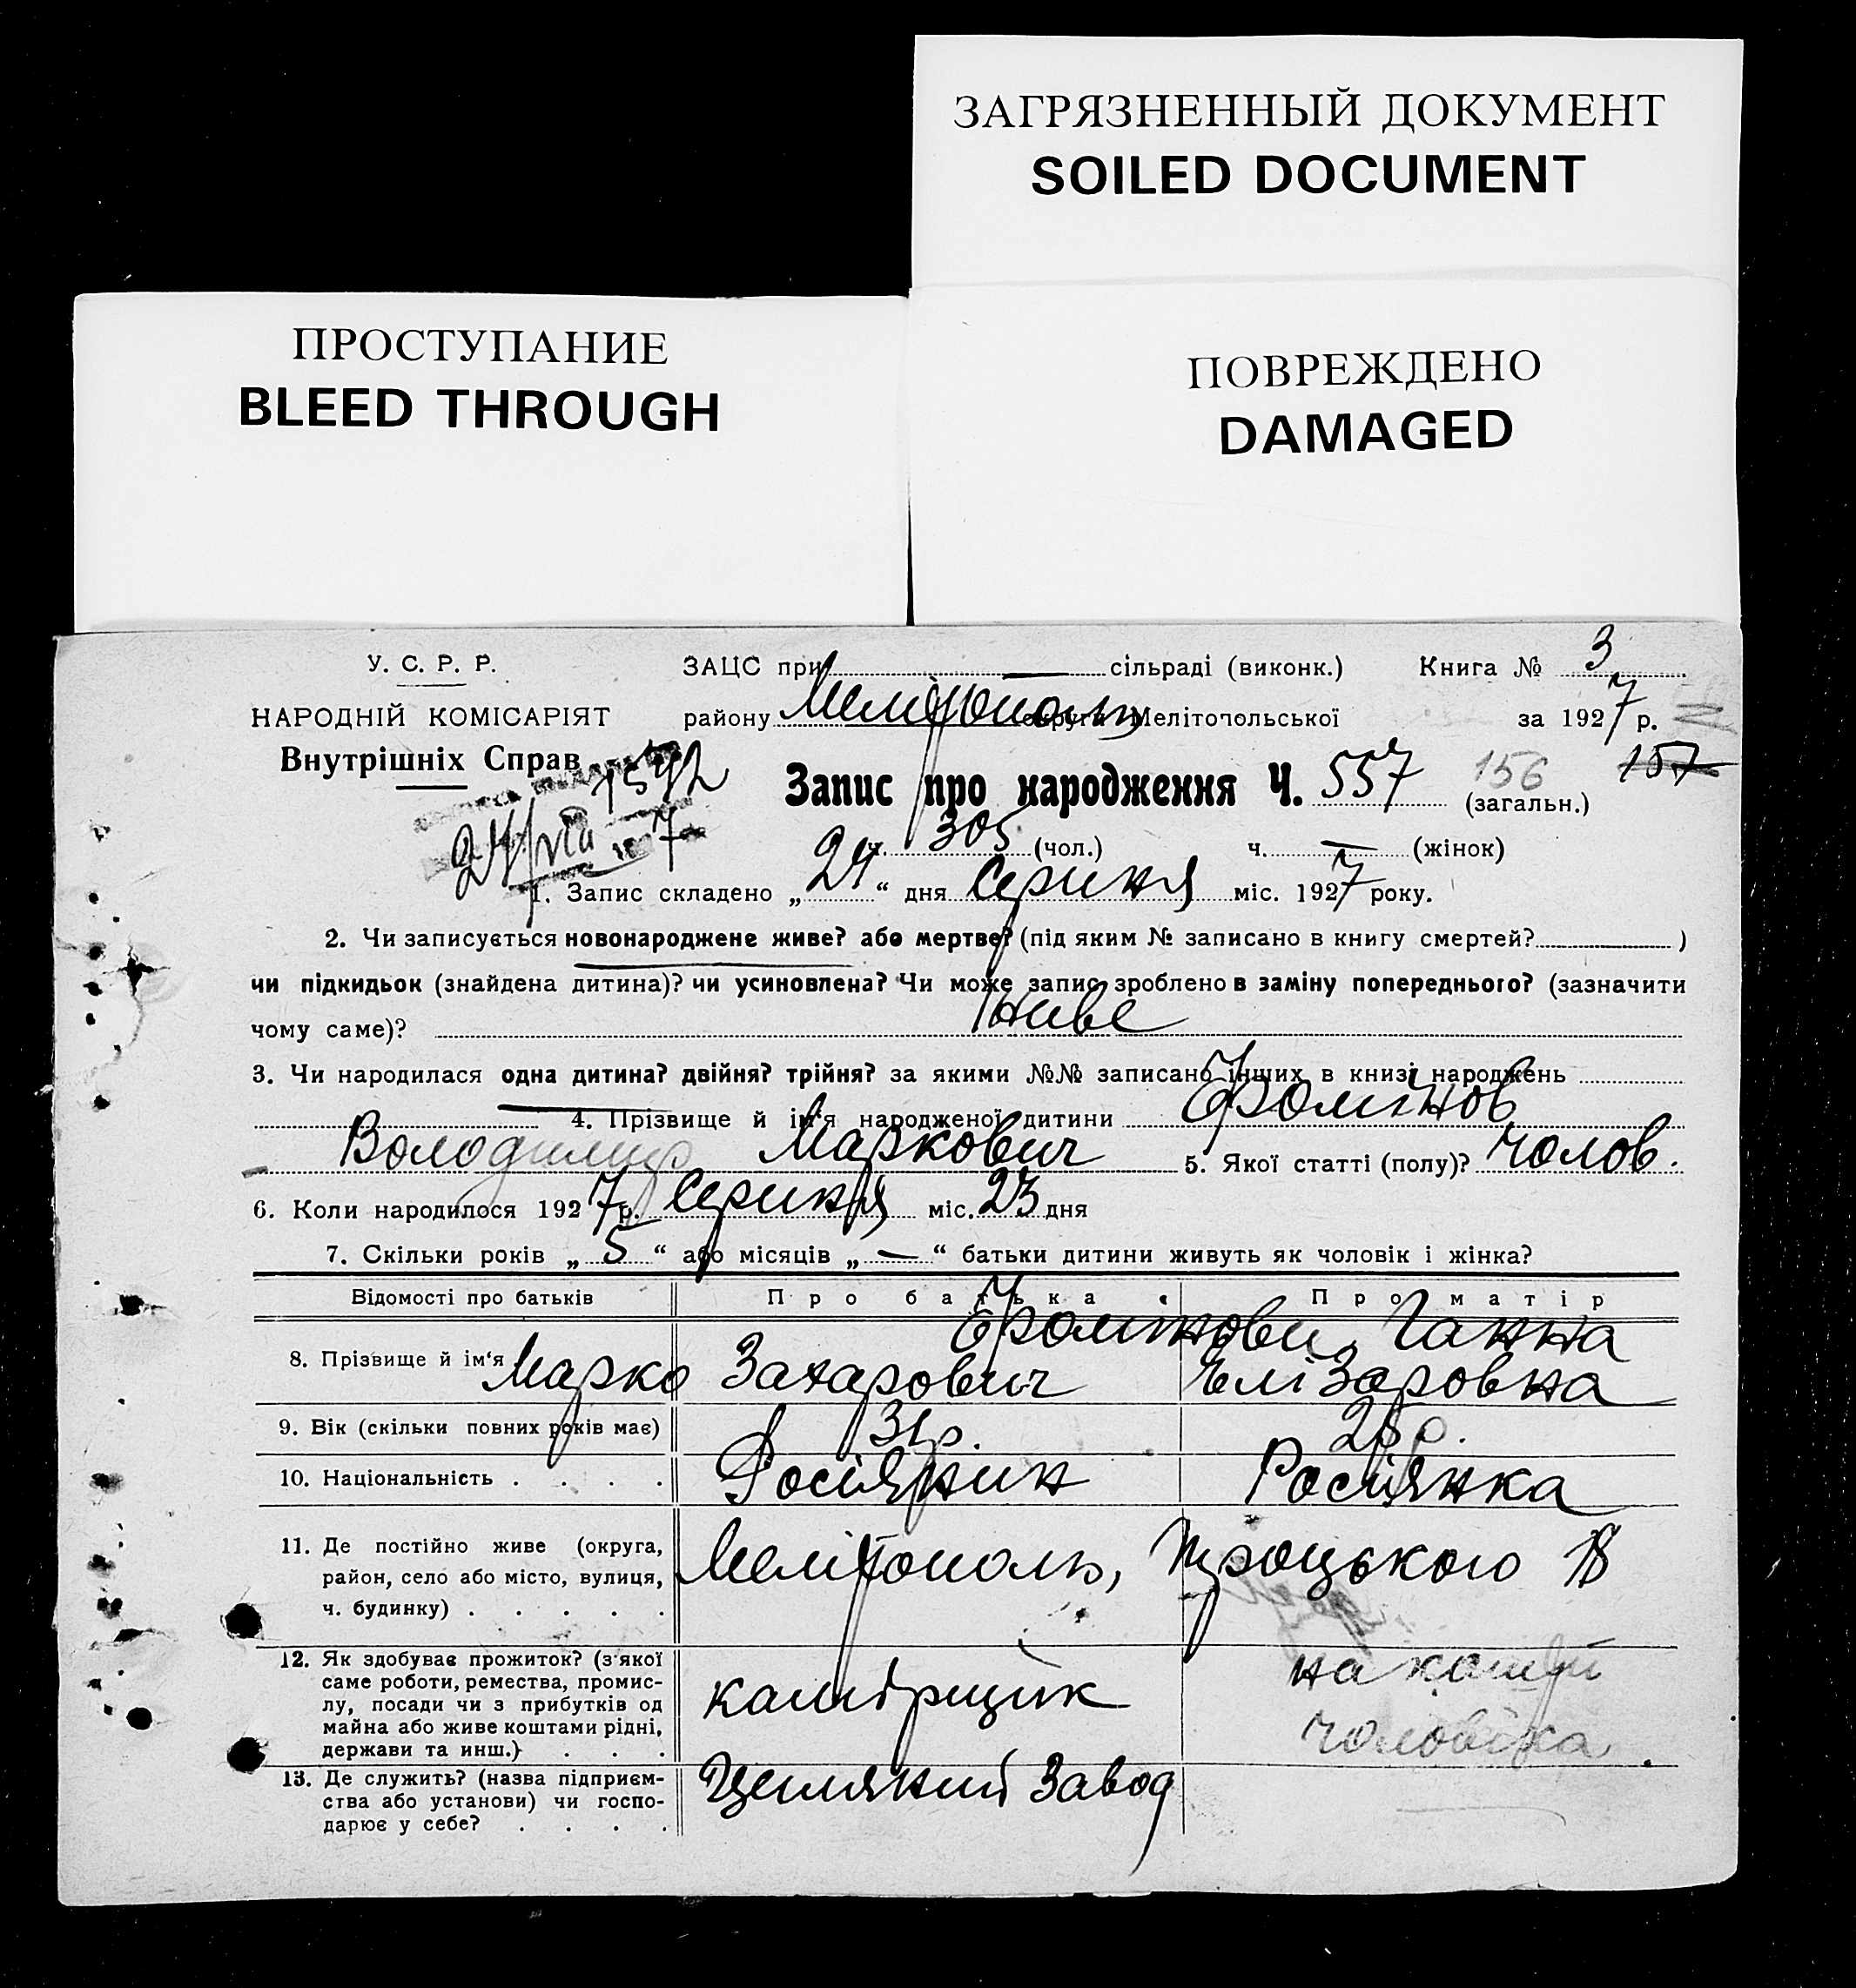 ЗАГРЯЗНЕННЫЙ ДОКУМЕНТ
SOILED DOCUMENT
ПРОСТУПАНИЕ
BLEED THROUGH
ПОВРЕЖДЕНО
DAMAGED
У. С. Р. Р.
НАРОДНІЙ КОМІСАРІЯТ
Внутрішніх Справ
ЗАЦС при — сільраді (виконк.) Книга № 3
району Мелітополь округи Мелітопольської за 1927 р.
1592
Запис про народження Ч. 557 (загальн.) 156 157
ч. 305 (чол.) ч. — (жінок)
24/VIII 1927
1. Запис складено „24“ дня Серпня міс. 1927 року.
2. Чи записується новонароджене живе? або мертве? (під яким № записано в книгу смертей? )
чи підкидьок (знайдена дитина)? чи усиновлена? Чи може запис зроблено в заміну попереднього? (зазначити
чому саме)? Живе
3. Чи народилася одна дитина? двійня? трійня? за якими №№ записано інших в книзі народжень
4. Прізвище й ім'я народженої дитини
Володимир Маркович 5. Якої статті (полу)? Чолов.
6. Коли народилося 1927 р. Серпня міс. 23 дня
7. Скільки років „5“ або місяців „—“ батьки дитини живуть як чоловік і жінка?
Відомості про батьків Про батька Про матір
8. Прізвище й ім'я Марко Захарович Ганна Елізаровна
9. Вік (скільки повних років має) 31 р.
10. Національність . . . . Росіянин Росіянка
11. Де постійно живе (округа,
район, село або місто, вулиця,
ч. будинку) . . . . .
Мелітополь, Троцького 18
12. Як здобуває прожиток? (з якої
саме роботи, ремества, промис-
лу, посади чи з прибутків од
майна або живе коштами рідні,
держави та инш.) . . .
на кошти
чоловіка
13. Де служить? (назва підприєм-
ства або установи) чи госпо-
дарює у себе? . . . .
Завод